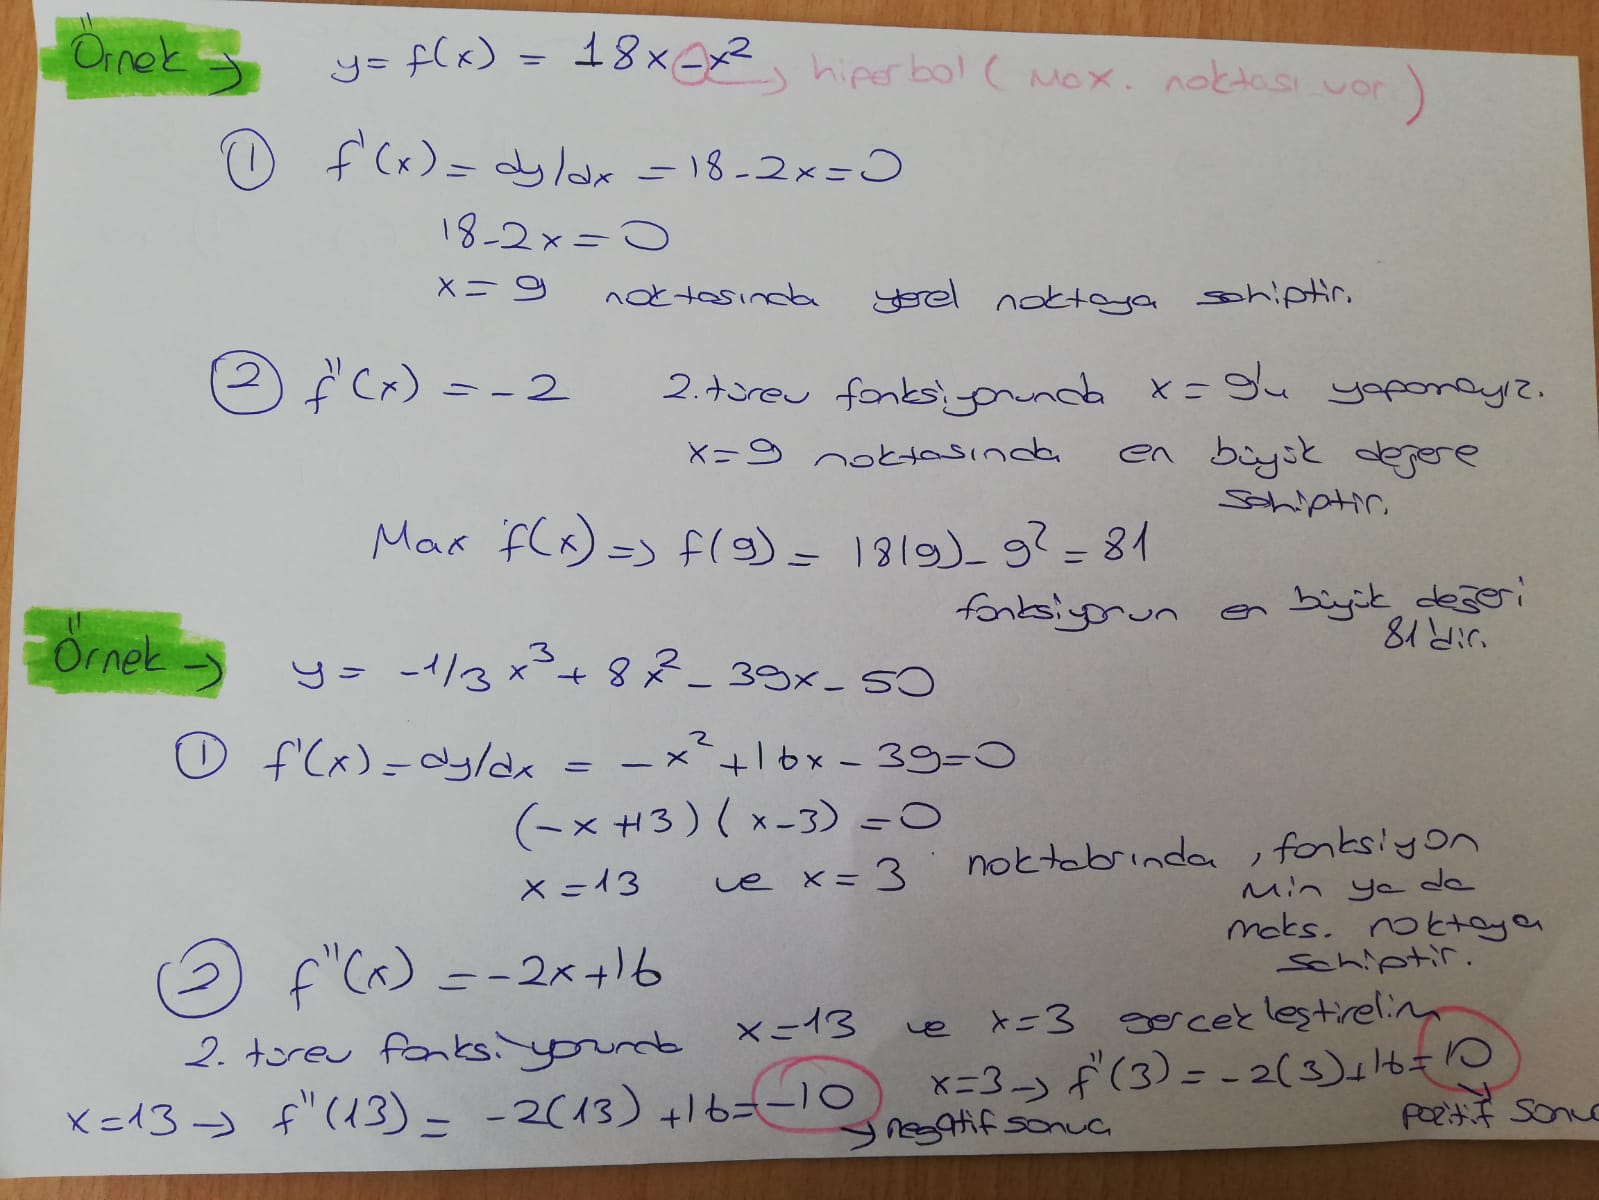 Örnek → y = f(x) = 18x - x² → hiperbol (Max. noktası var)
① f'(x) = dy/dx = 18-2x=0
18-2x=0
x=9 noktasında yerel noktaya sahiptir.
② f''(x) = -2 2. türev fonksiyonunda x=9'u yapamayız.
x=9 noktasında en büyük değere
sahiptir.
Max f(x) => f(9) = 18(9)-9²=81
fonksiyonun en büyük değeri
81'dir.
Örnek → y = -1/3 x³ + 8x² - 39x - 50
① f'(x) = dy/dx = -x² + 16x - 39=0
(-x+13)(x-3)=0
x=13 ve x=3 noktalarında, fonksiyon
min ya da
maks. noktaya
sahiptir.
② f''(x) = -2x+16
2. türev fonksiyonunda x=13 ve x=3 gerçekleştirelim
x=13 → f''(13) = -2(13)+16=-10 → negatif sonuç
x=3 → f''(3) = -2(3)+16=10 → pozitif sonuç